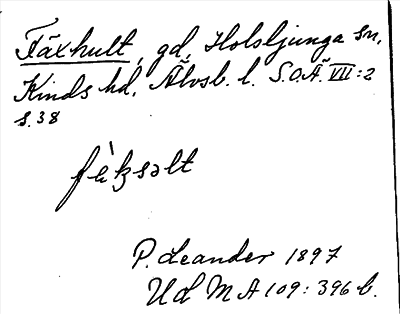 Fäxhult, gd, Holsljunga sn,
Kinds hd, Älvsb. l. S.O.Ä. VII:2
s. 38
fàksəlt
P. Leander 1897
Ud M A 109: 396 b.